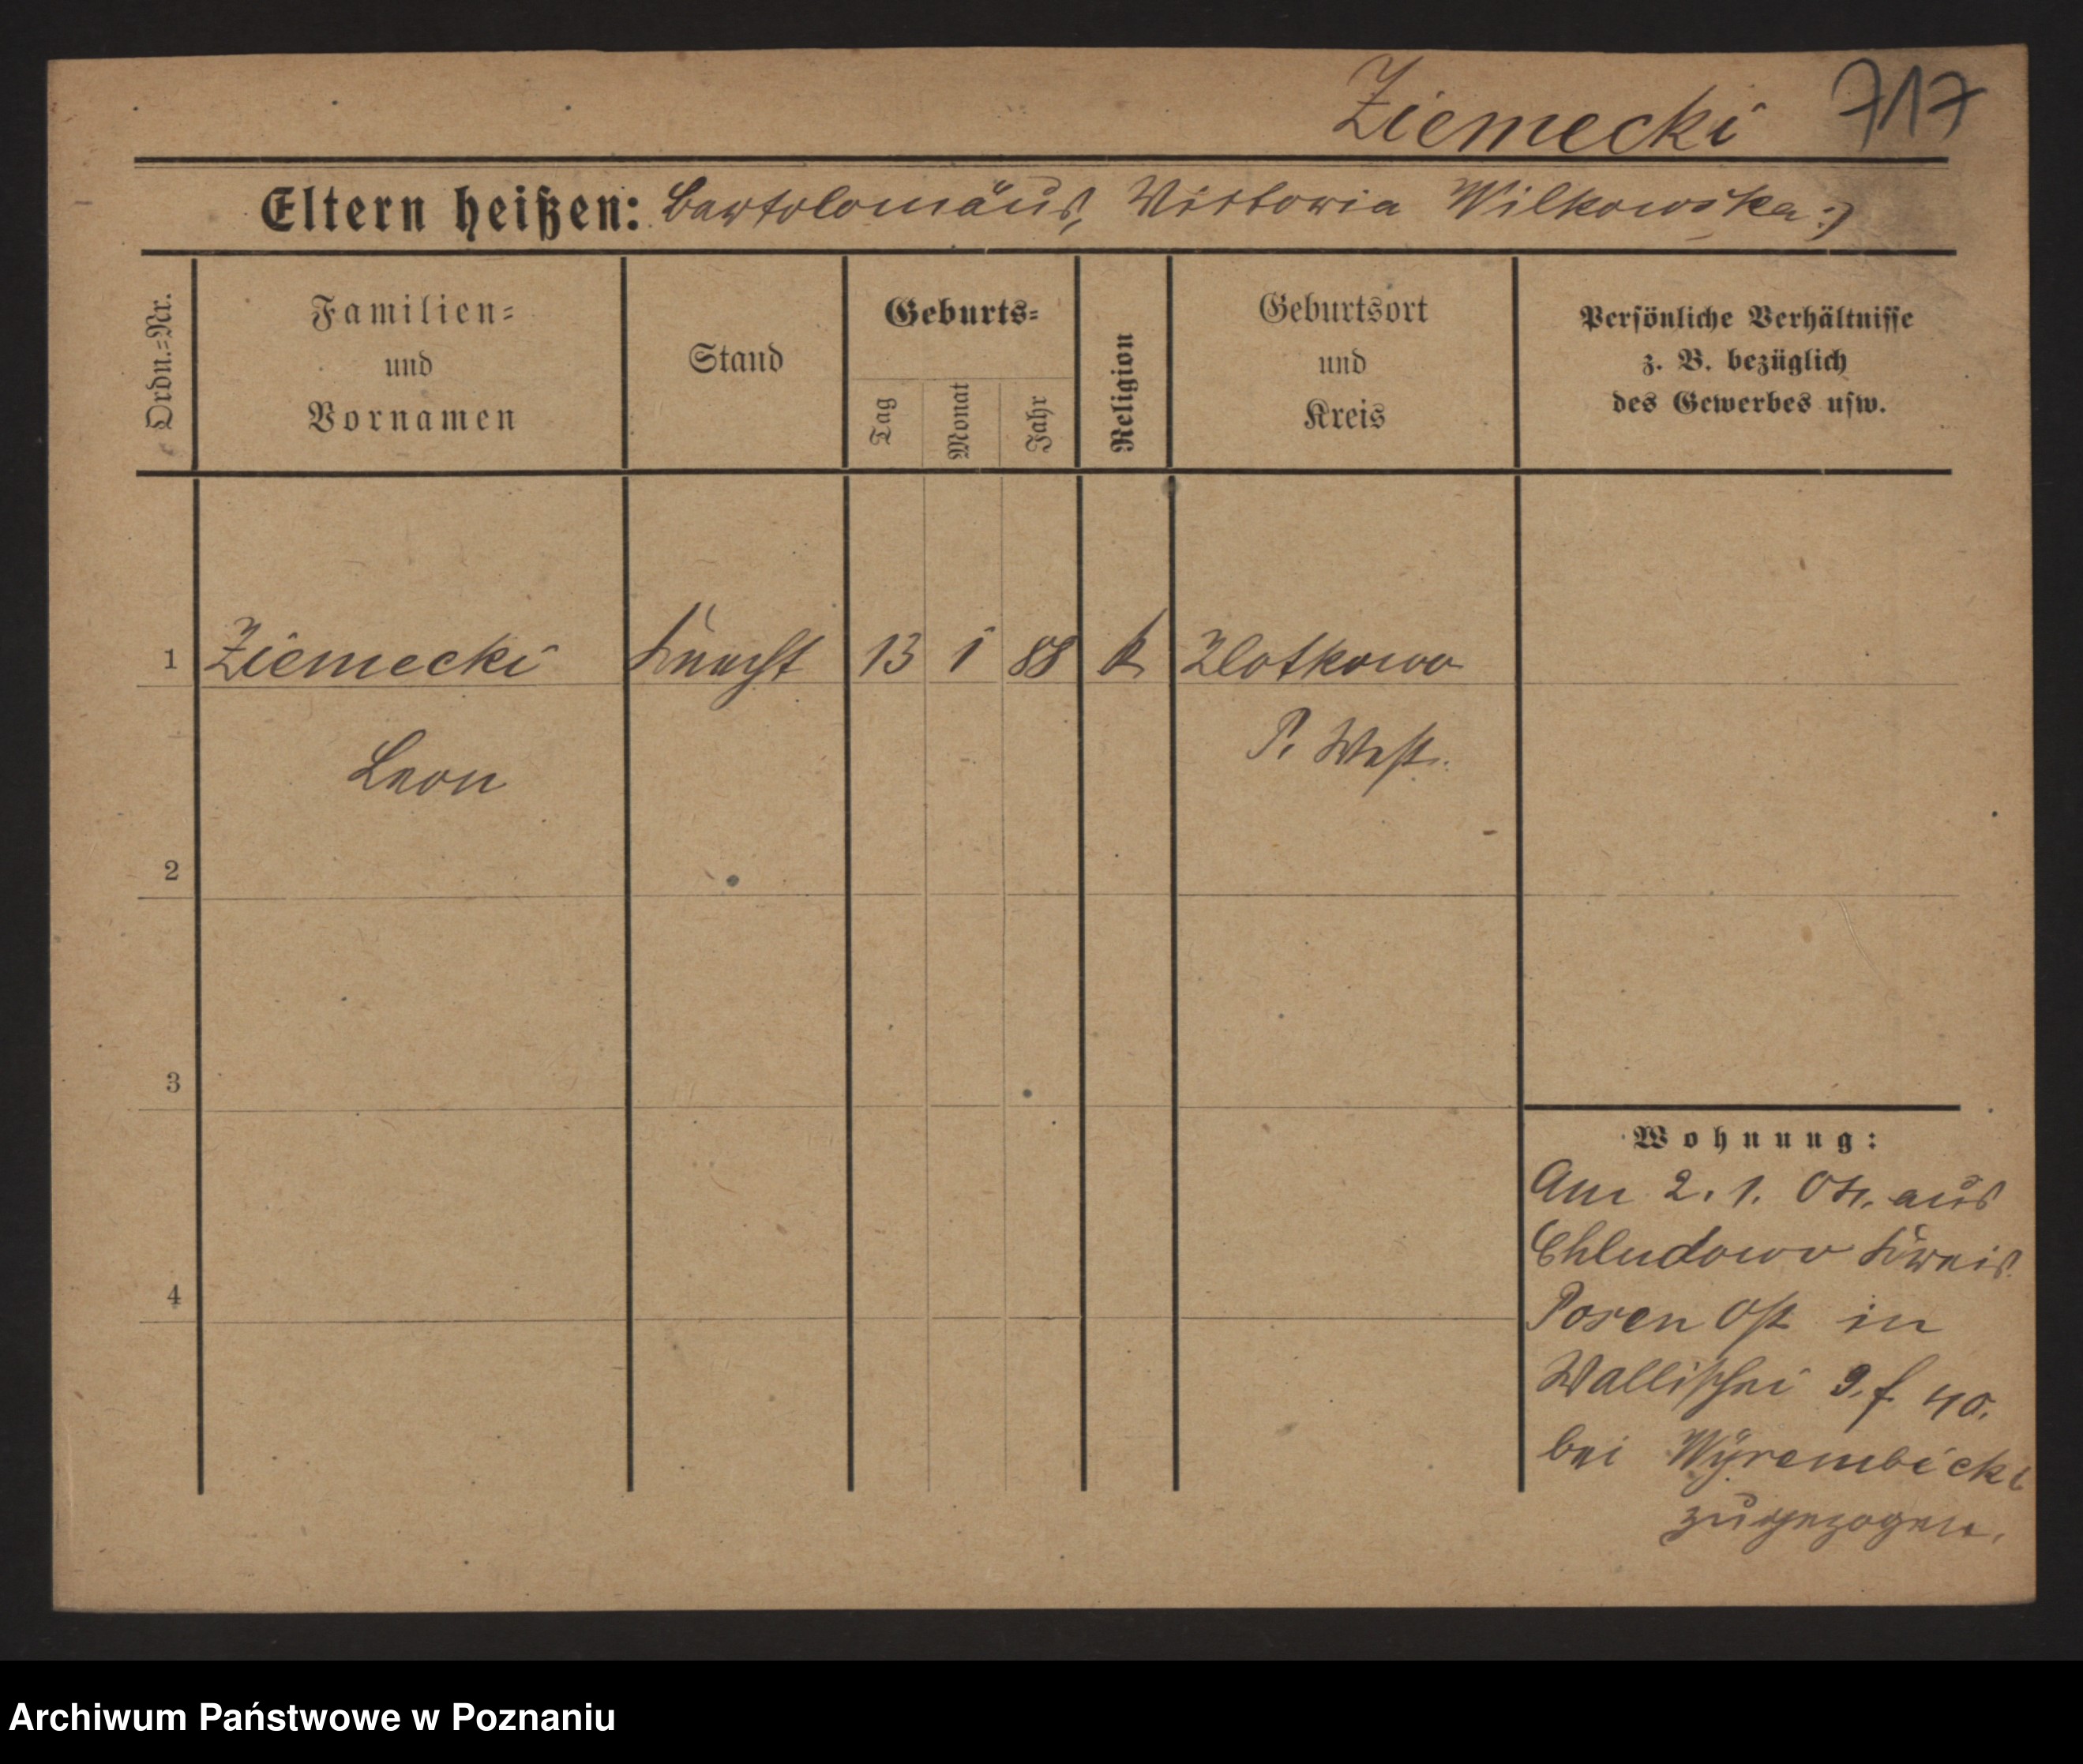 Ziemecki 717
Eltern heißen: Bartolomäus, Viktoria Wilkowska :)
Ordn.=Nr.
Familien=
und
Vornamen
Stand
Geburts=
Tag
Monat
Jahr
Religion
Geburtsort
und
Kreis
Persönliche Verhältnisse
z. B. bezüglich
des Gewerbes usw.
1 Ziemecki Knecht 13 1 88 k Zlotkowo
Leon P. West.
2
3
4
Wohnung:
Am 2. 1. 04. aus
Chludowo Kreis
Posen Ost in
Wallischei 40.
bei Wyrembicki
zugezogen.
Archiwum Państwowe w Poznaniu